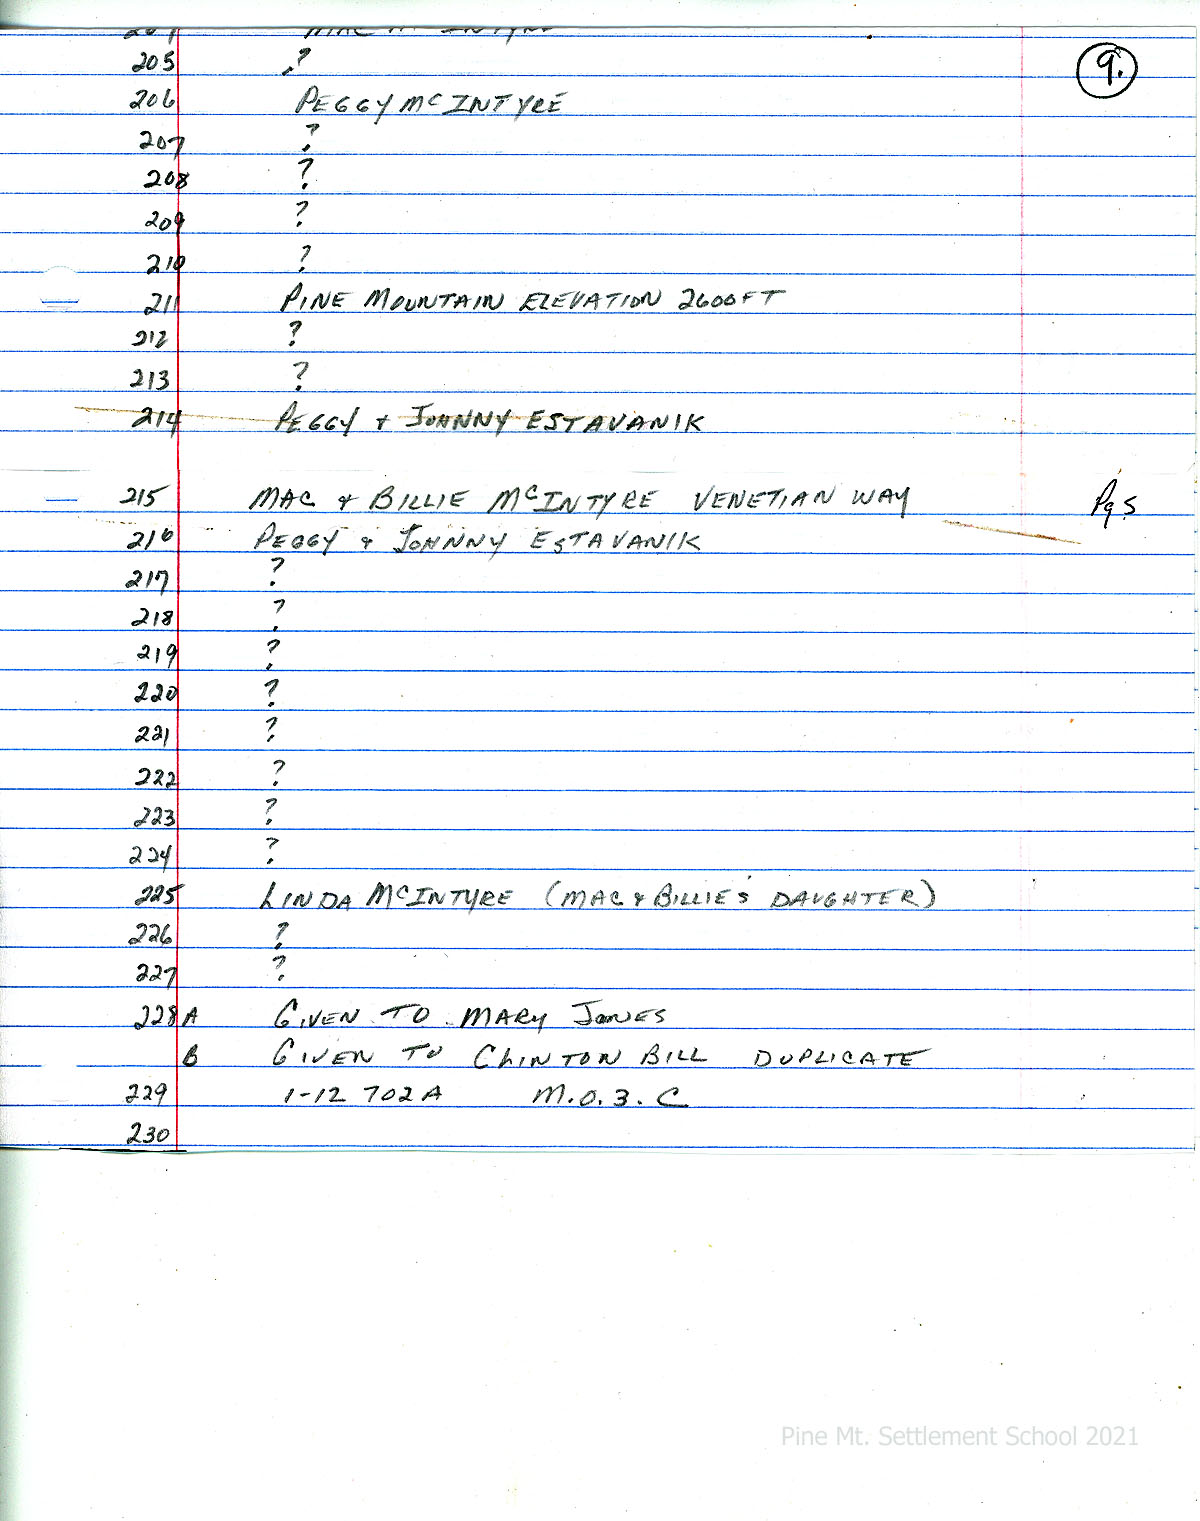 204 MAC McINTYRE
205 ?
9.
206 PEGGY McINTYRE
207 ?
208 ?
209 ?
210 ?
211 PINE MOUNTAIN ELEVATION 2600FT
212 ?
213 ?
214 PEGGY + JOHNNY ESTAVANIK
215 MAC & BILLIE McINTYRE VENETIAN WAY Pg 5
216 PEGGY & JOHNNY ESTAVANIK
217 ?
218 ?
219 ?
220 ?
221 ?
222 ?
223 ?
224 ?
225 LINDA McINTYRE (MAC & BILLIE'S DAUGHTER)
226 ?
227 ?
228 A GIVEN TO MARY JONES
B GIVEN TO CLINTON BILL DUPLICATE
229 1-12 702A M.O.3.C
230
Pine Mt. Settlement School 2021